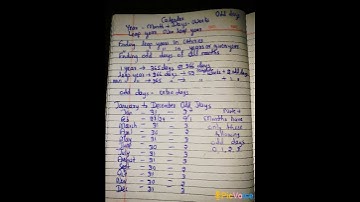 Calendar Odd days
Year - Month - Days - Weeks
Leap year Non leap year
Finding leap year in century
Finding odd days of all months
1 year → 365 days @ 366 days
leap year → 366 days → 52 weeks + 2 odd days
odd days - extra days
January to December Odd Days
Jan - 31 - 3
Feb - 28/29 - 0/1
March - 31 - 3
April - 30 - 2
May - 31 - 3
June - 30 - 2
July - 31 - 3
August - 31 - 3
Sept - 30 - 2
Oct - 31 - 3
Nov - 30 - 2
Dec - 31 - 3
Months have
only these
following
odd days
0, 1, 2, 3